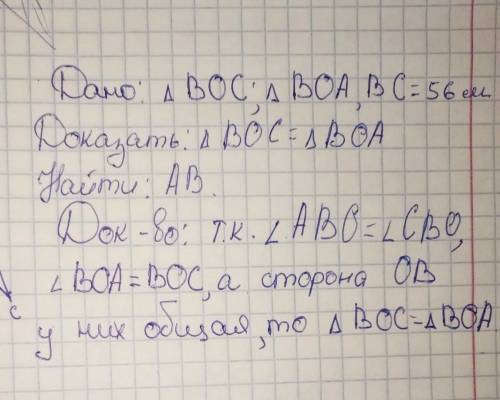 Дано: △ BOC; △ BOA, BC = 56 см
Доказать: △ BOC = △ BOA
Найти: AB.
Док-во: т.к. ∠ABO = ∠CBO,
∠BOA = BOC, а сторона OB
C
у них общая, то △ BOC = △BOA